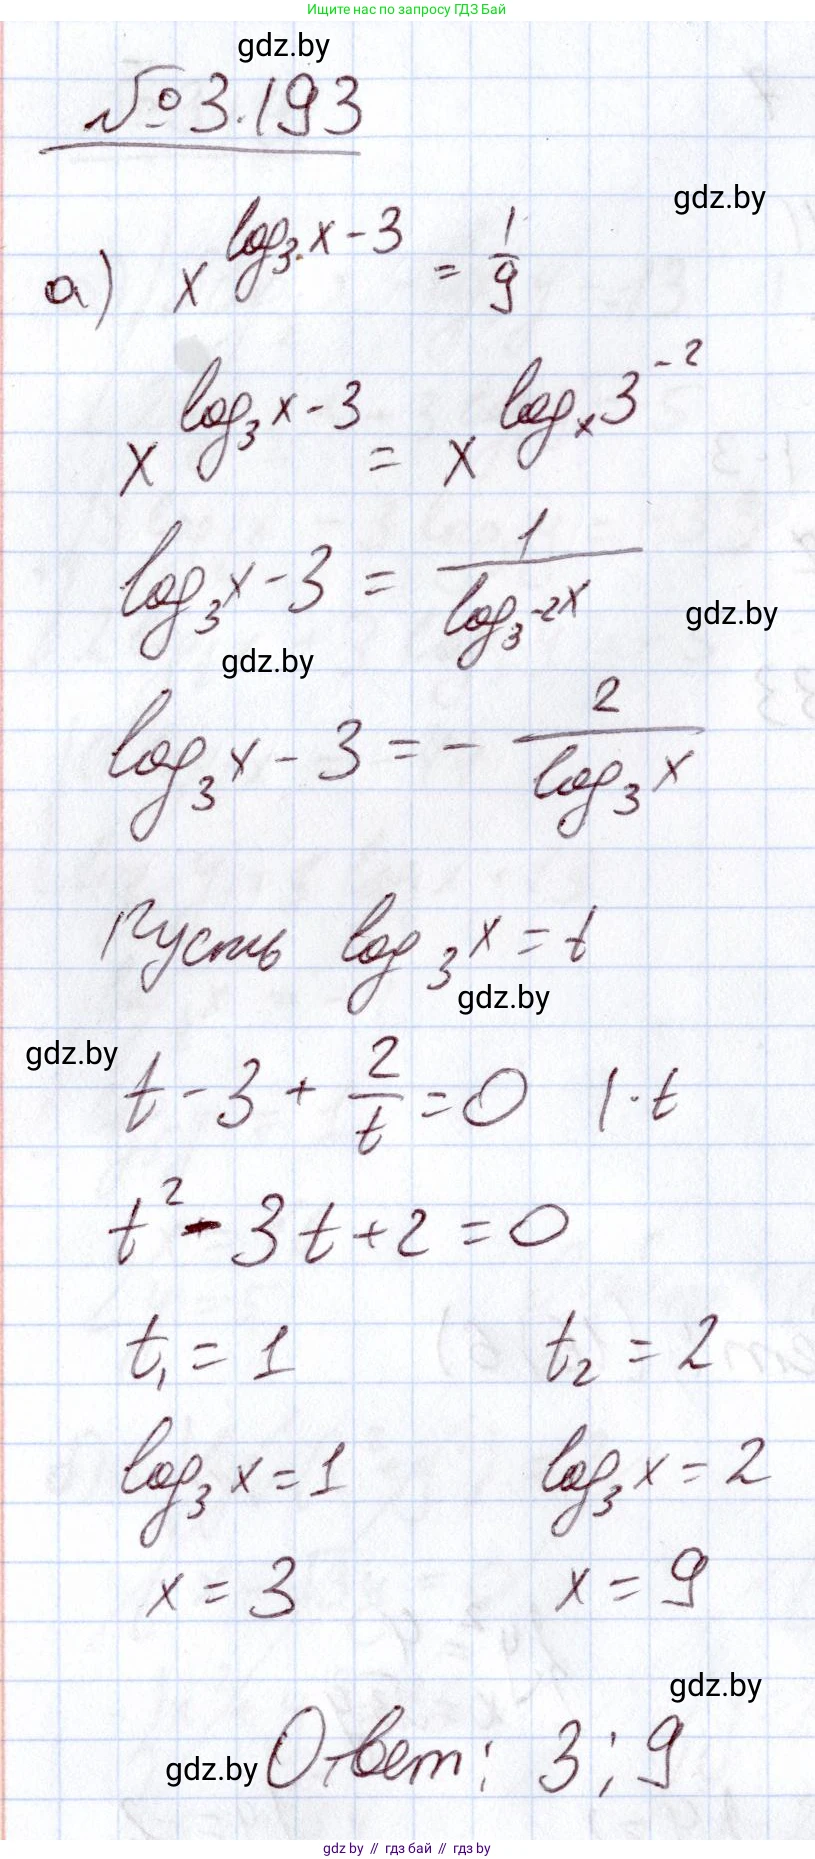 Ищите нас по запросу ГДЗ Бай
gdz.by
№ 3.193
gdz.by
а) x^(log₃ x - 3) = 1/9
x^(log₃ x - 3) = x^(logₓ 3⁻²)
log₃ x - 3 = 1/(log₃⁻² x)
gdz.by
gdz.by
log₃ x - 3 = - 2/(log₃ x)
Пусть log₃ x = t
gdz.by
gdz.by
t - 3 + 2/t = 0 | · t
t² - 3t + 2 = 0
t₁ = 1 t₂ = 2
log₃ x = 1 log₃ x = 2
x = 3 x = 9
gdz.by
gdz.by
Ответ: 3; 9
gdz by // гдз бай // гдз by